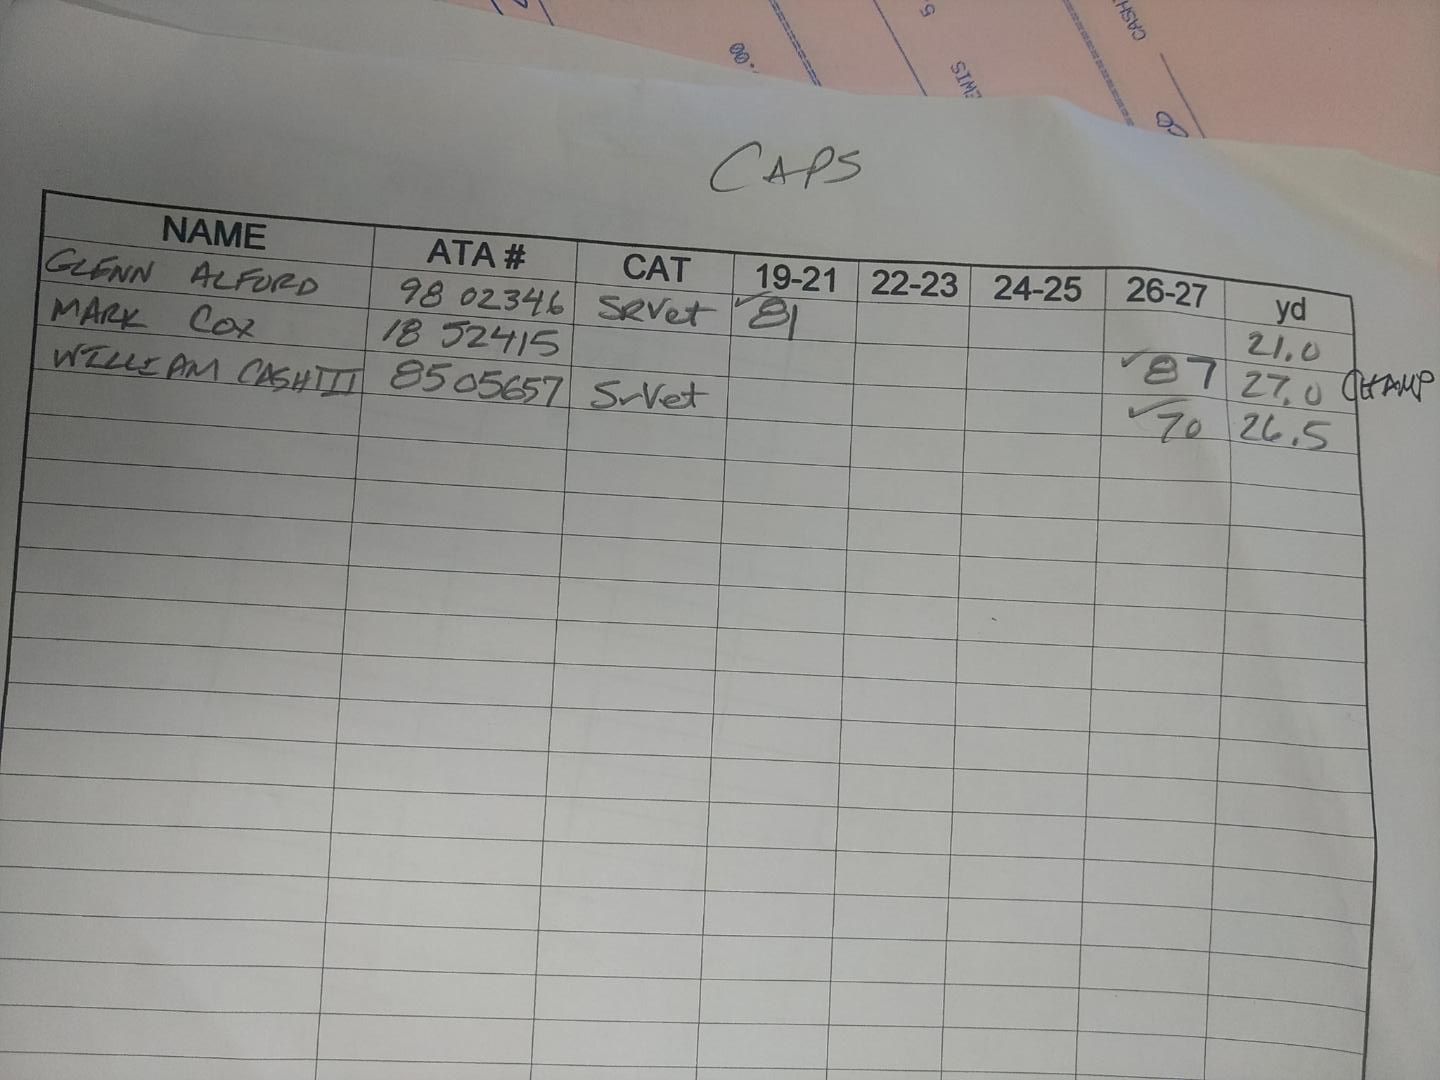 CASH
5
EWIS
00.
CAPS
NAME ATA # CAT 19-21 22-23 24-25 26-27 yd
GLENN ALFORD 98 02346 SRVet 81 21.0
MARK COX 18 52415 87 27.0 CHAMP
WILLIAM CASH III 8505657 SrVet 70 26.5